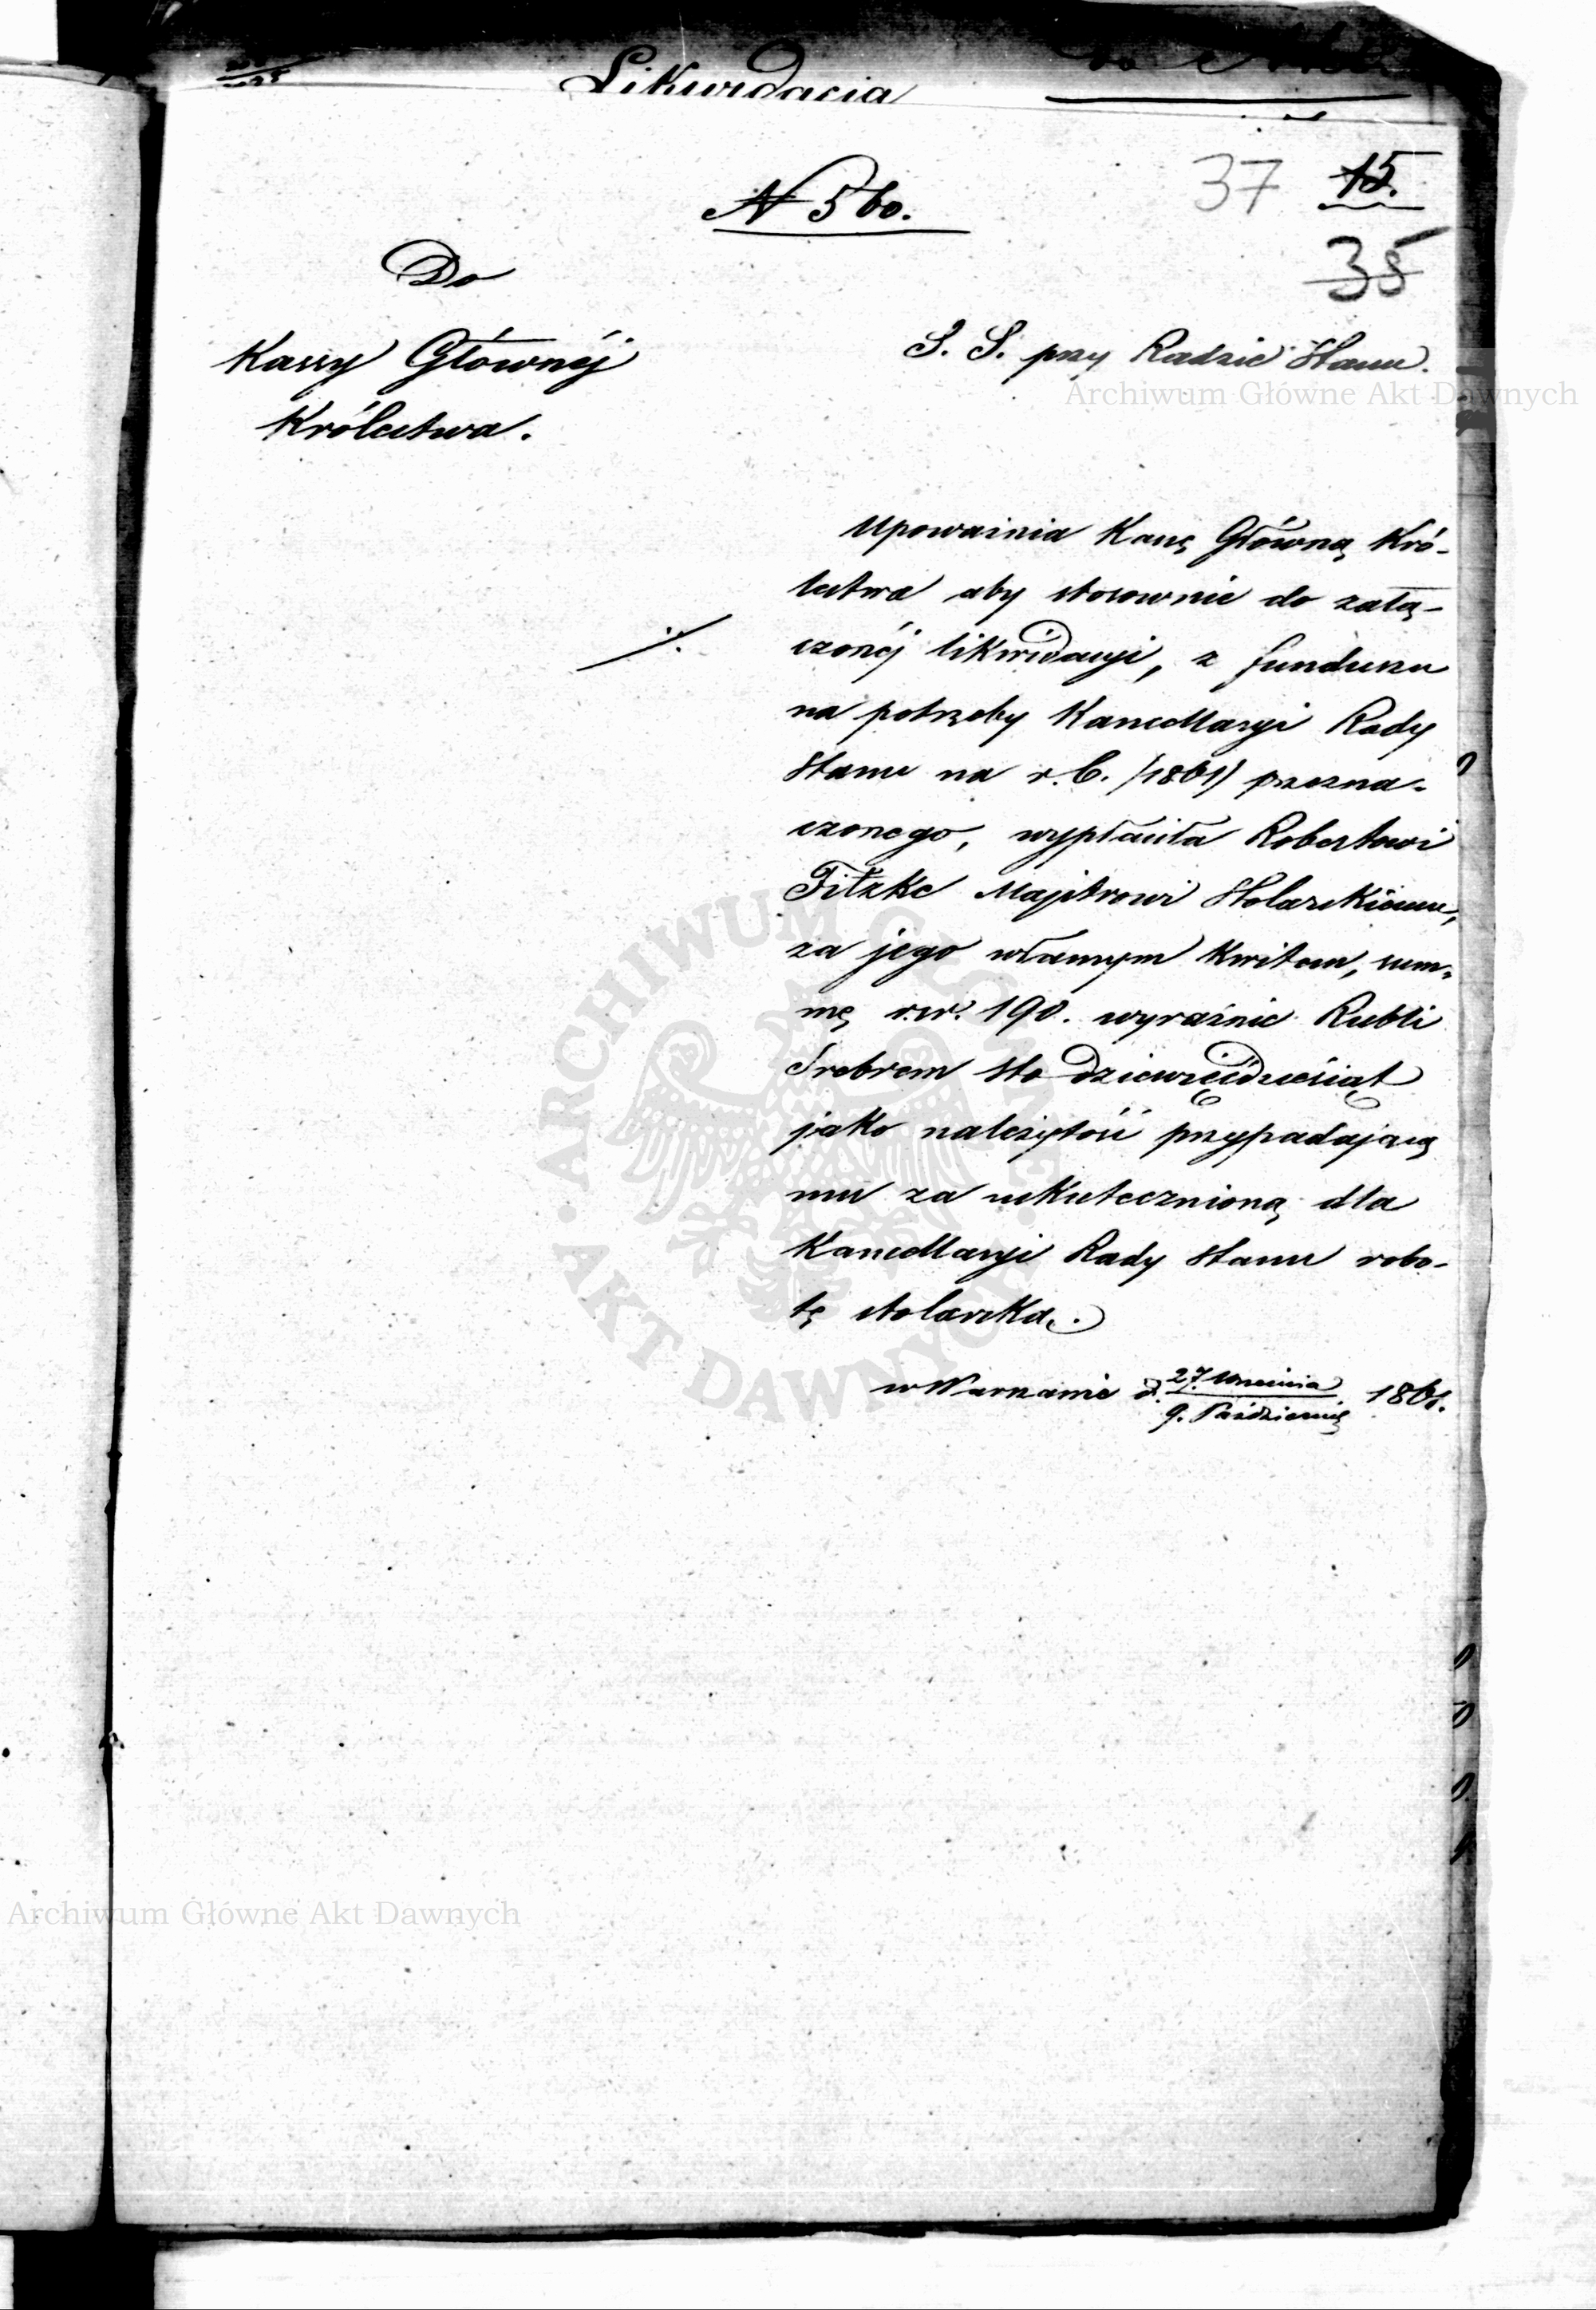 Likwidacia
N 560.
37 15.
35
Do
Kassy Głównéj
Królestwa.
S. S. przy Radzie Stanu.
Archiwum Główne Akt Dawnych
Upoważnia Kassę Główną Kró-
lestwa aby stosownie do załą-
czonéj likwidacyi, z funduszu
na potrzeby Kancellaryi Rady
Stanu na r. b. /1861/ przezna-
czonego, wypłaciła Robertowi
Fitzke Majstrowi Stolarskiemu,
za jego własnym kwitem, sum-
mę rsr. 190. wyraźnie Rubli
Srebrem sto dziewięćdziesiąt
jako należytość przypadającą
mu za uskutecznioną dla
Kancellaryi Rady Stanu robo-
tę stolarską.
w Warszawie d. 27. Września
9. Październik 1861.
ARCHIWUM GŁÓWNE AKT DAWNYCH
Archiwum Główne Akt Dawnych